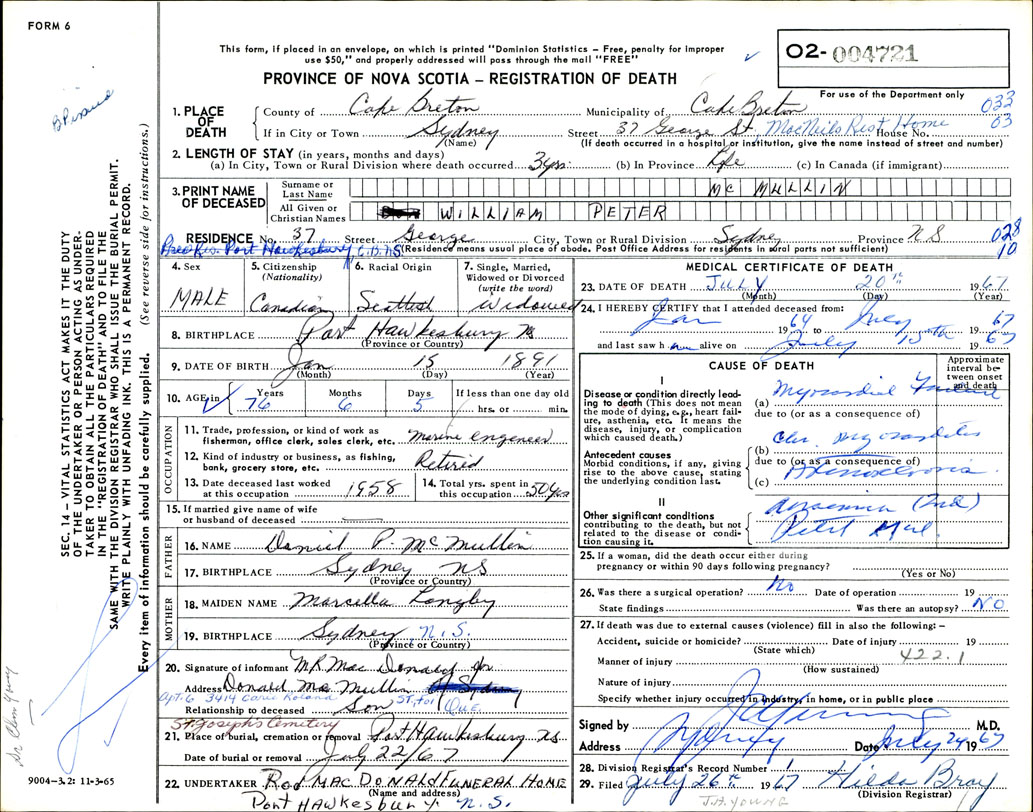 FORM 6
This form, if placed in an envelope, on which is printed "Dominion Statistics – Free, penalty for improper
use $50," and properly addressed will pass through the mail "FREE"
O2- 004721
PROVINCE OF NOVA SCOTIA – REGISTRATION OF DEATH
For use of the Department only
033
03
1. PLACE OF DEATH
County of Cape Breton Municipality of Cape Breton
If in City or Town Sydney Street 37 George St, MacNeils Rest Home House No.
(Name) (If death occurred in a hospital or institution, give the name instead of street and number)
2. LENGTH OF STAY (in years, months and days)
(a) In City, Town or Rural Division where death occurred 3 yrs. (b) In Province Life (c) In Canada (if immigrant)
3. PRINT NAME OF DECEASED
Surname or Last Name MC MULLIN
All Given or Christian Names WILLIAM PETER
RESIDENCE No. 37 Street George City, Town or Rural Division Sydney Province NS
028
10
Port Hawkesbury, C.B. N.S. (Residence means usual place of abode. Post Office Address for residents in rural parts not sufficient)
4. Sex MALE
5. Citizenship (Nationality) Canadian
6. Racial Origin Scottish
7. Single, Married, Widowed or Divorced (write the word) Widowed
8. BIRTHPLACE Port Hawkesbury NS
(Province or Country)
9. DATE OF BIRTH Jan 15 1891
(Month) (Day) (Year)
10. AGE in Years 76 Months 6 Days 5 If less than one day old hrs. or min.
OCCUPATION
11. Trade, profession, or kind of work as fisherman, office clerk, sales clerk, etc. Marine engineer
12. Kind of industry or business, as fishing, bank, grocery store, etc. Retired
13. Date deceased last worked at this occupation 1958
14. Total yrs. spent in this occupation 50 yrs
15. If married give name of wife or husband of deceased
FATHER
16. NAME Daniel P. McMullin
17. BIRTHPLACE Sydney NS
(Province or Country)
MOTHER
18. MAIDEN NAME Marcella
19. BIRTHPLACE Sydney N.S.
(Province or Country)
20. Signature of informant MR Mac Donald for
Address Donald Mc Mullin
Apt. 6 3414 St, QUE.
Relationship to deceased Son
St. Josephs Cemetery
21. Place of burial, cremation or removal Port Hawkesbury NS
Date of burial or removal July 22/67
22. UNDERTAKER Rod MAC DONALD FUNERAL HOME
(Name and address)
Port HAWKESBURY. N.S.
MEDICAL CERTIFICATE OF DEATH
23. DATE OF DEATH JULY 20th 1967
(Month) (Day) (Year)
24. I HEREBY CERTIFY that I attended deceased from:
Jan 1964 to July 1967
and last saw him alive on July 15th 1967
CAUSE OF DEATH
Approximate interval between onset and death
I
Disease or condition directly leading to death (This does not mean the mode of dying, e.g., heart failure, asthenia, etc. It means the disease, injury, or complication which caused death.)
(a) Myocardial Failure
due to (or as a consequence of)
Antecedent causes
Morbid conditions, if any, giving rise to the above cause, stating the underlying condition last.
(b) Chr. Myocarditis
due to (or as a consequence of)
(c)
II
Other significant conditions contributing to the death, but not related to the disease or condition causing it.
(2nd)
Petit Mal
25. If a woman, did the death occur either during pregnancy or within 90 days following pregnancy?
(Yes or No)
26. Was there a surgical operation? No Date of operation 19
State findings Was there an autopsy? NO
27. If death was due to external causes (violence) fill in also the following: –
Accident, suicide or homicide? Date of injury 19
(State which)
422.1
Manner of injury
(How sustained)
Nature of injury
Specify whether injury occurred in industry, in home, or in public place
Signed by M.D.
Address Sydney Date July 24 1967
28. Division Registrar's Record Number
29. Filed July 26th 1967 Hilda Bray
(Division Registrar)
J.A. YOUNG
SEC. 14 – VITAL STATISTICS ACT MAKES IT THE DUTY
OF THE UNDERTAKER OR PERSON ACTING AS UNDER-
TAKER TO OBTAIN ALL THE PARTICULARS REQUIRED
IN THE "REGISTRATION OF DEATH" AND TO FILE THE
SAME WITH THE DIVISION REGISTRAR WHO SHALL ISSUE THE BURIAL PERMIT.
WRITE PLAINLY WITH UNFADING INK. THIS IS A PERMANENT RECORD.
Every item of information should be carefully supplied. (See reverse side for instructions.)
9004–3.2: 11-3-65